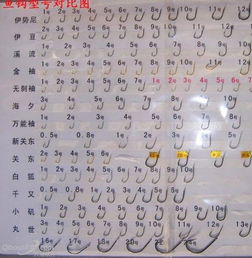 鱼钩型号对比图
伊势尼 1号 2号 3号 4号 5号 6号 7号 8号 9号 10号 11号 12号
伊豆 2号 3号 4号 5号 6号 7号 8号 9号 10号 11号 12号
溪流 3号 4号 5号 6号 7号 8号 9号
金袖 1号 2号 3号 4号 5号 6号 7号 8号 9号 10号 11号 12号
无刺袖 1号 2号 3号 4号 5号 6号 7号
海夕 3号 4号 5号 6号 7号 8号 9号 10号
万能袖 1号 2号 3号 4号 5号 6号 7号
新关东 0.5号 0.8号 1号 2号 3号 4号 5号
关东 2号 3号 4号 5号 6号
白狐 1号 2号 3号 4号 5号 6号 7号 8号 9号 10号
千又 0.5号 0.8号 1号 2号 3号 4号 5号 6号
小矶 1号 2号 3号 4号 5号 6号 7号 8号 9号 10号
丸世 6号 7号 8号 9号 10号 11号 12号 13号
16号 17号 18号 20号 22号 24号